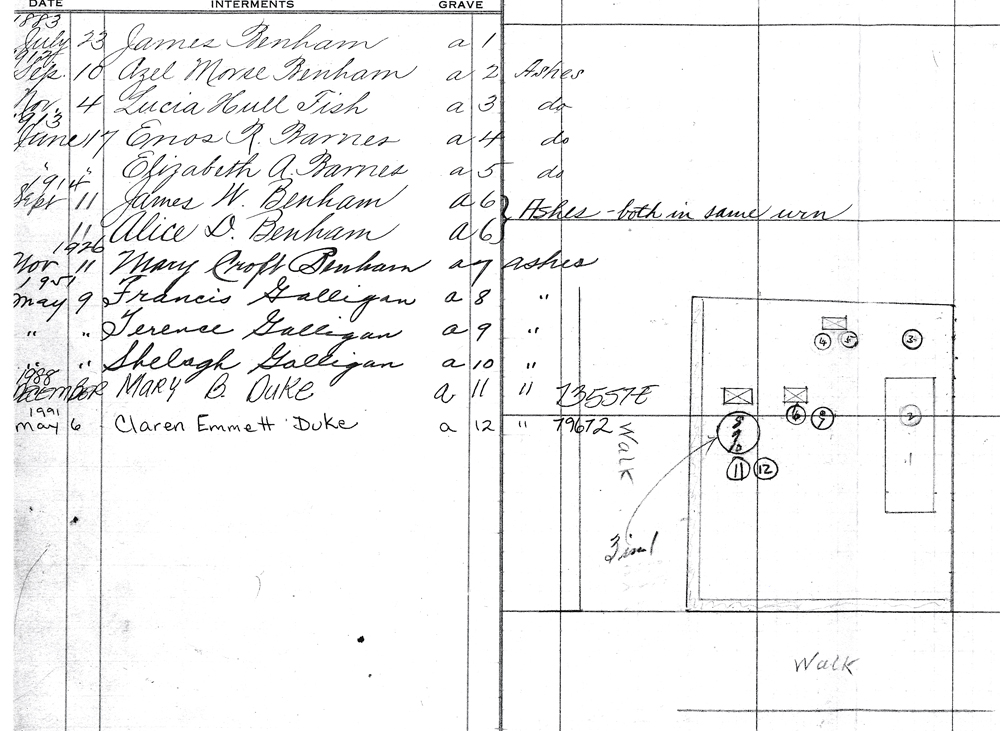 DATE INTERMENTS GRAVE
1883
July 23 James Benham a 1
1912
Sep. 10 Azel Morse Benham a 2 Ashes
Nov. 4 Lucia Hull Fish a 3 do
1913
June 17 Enos R. Barnes a 4 do
" " Elizabeth A. Barnes a 5 do
1914
Sept 11 James W. Benham a 6
} Ashes - both in same urn
11 Alice D. Benham a 6
1926
Nov 11 Mary Croft Benham a 7 ashes
May 9 Francis Galligan a 8 "
" " Terence Galligan a 9 "
" " Shelagh Galligan a 10 "
1988
DECEMBER MARY B. DUKE a 11 "
1991
May 6 Claren Emmett Duke a 12 " 79672
4 5 3
6 7 2
8
9
10
1
11 12
Walk
3 in 1
Walk